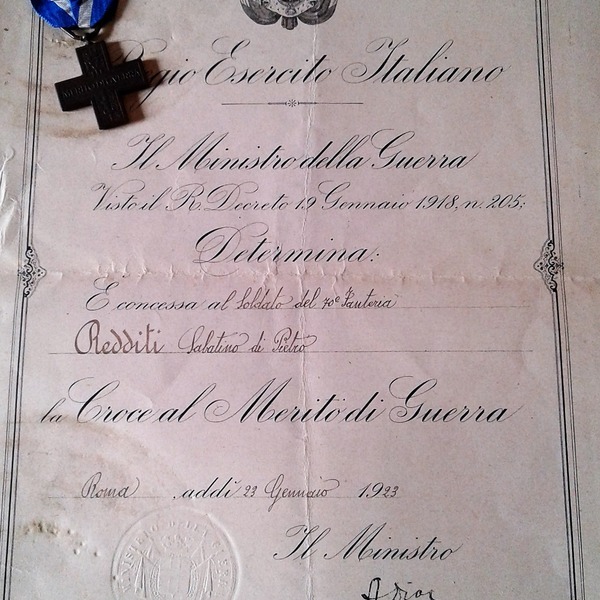 Regio Esercito Italiano
Il Ministro della Guerra
Visto il R. Decreto 19 Gennaio 1918, n. 205;
Determina:
È concessa al Soldato del 70º Fanteria
Redditi Sabatino di Pietro
la Croce al Merito di Guerra
Roma addì 23 Gennaio 1923
MINISTERO DELLA GUERRA
Il Ministro
ADiaz